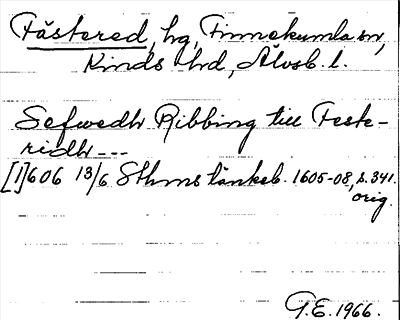 Fästered, hg, Finnekumla sn,
Kinds hd, Älvsb. l.
Sefwedh Ribbing till Feste-
ridh ---
[1]606 13/6 Sthms tänkeb. 1605-08, s. 341.
orig.
G.E. 1966.